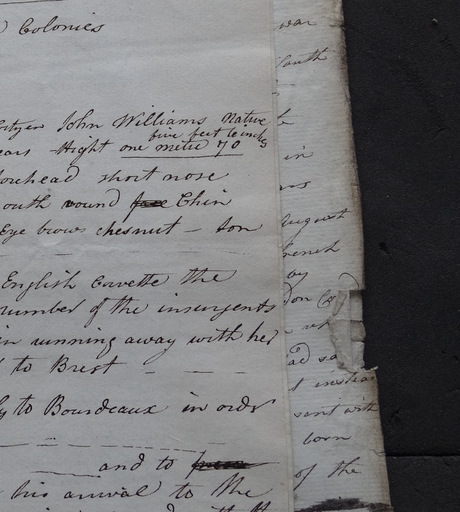 Colonies
John Williams Native
five feet 6 inchs
ears Hight one metre 70
forehead short nose
outh round face Chin
Eye brows chesnut - son
English Corvette the
number of the insurgents
in running away with her
to Brest
to Bourdeaux in order
and to
his arrival to the
war
South
in
August
french
ad
t
sent with
born
of the